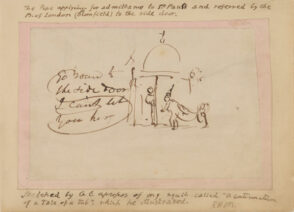 The Poor applying for admittance to St Pauls and referred by the
Bp of London (Blomfield) to the side door.
Go round to
the side door
I can't let
you here
Sketched by G.C. apropos of my squib called "A continuation
of a Tale of a Tub" which he illustrated.